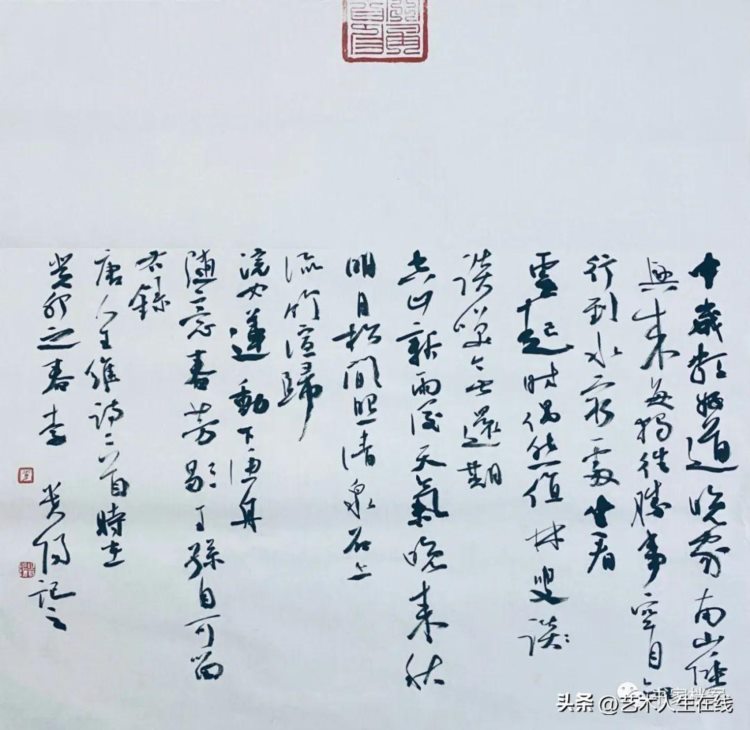 中歲頗好道晚家南山陲
興來每獨往勝事空自
行到水窮處坐看
雲起時偶然值林叟談
談笑無還期
空山新雨後天氣晚來秋
明月松間照清泉石上
流竹喧歸
浣女蓮動下漁舟
隨意春芳歇王孫自可留
右錄
唐人王維詩二首時在
癸卯之春李
記之
头条 @艺术人生在线